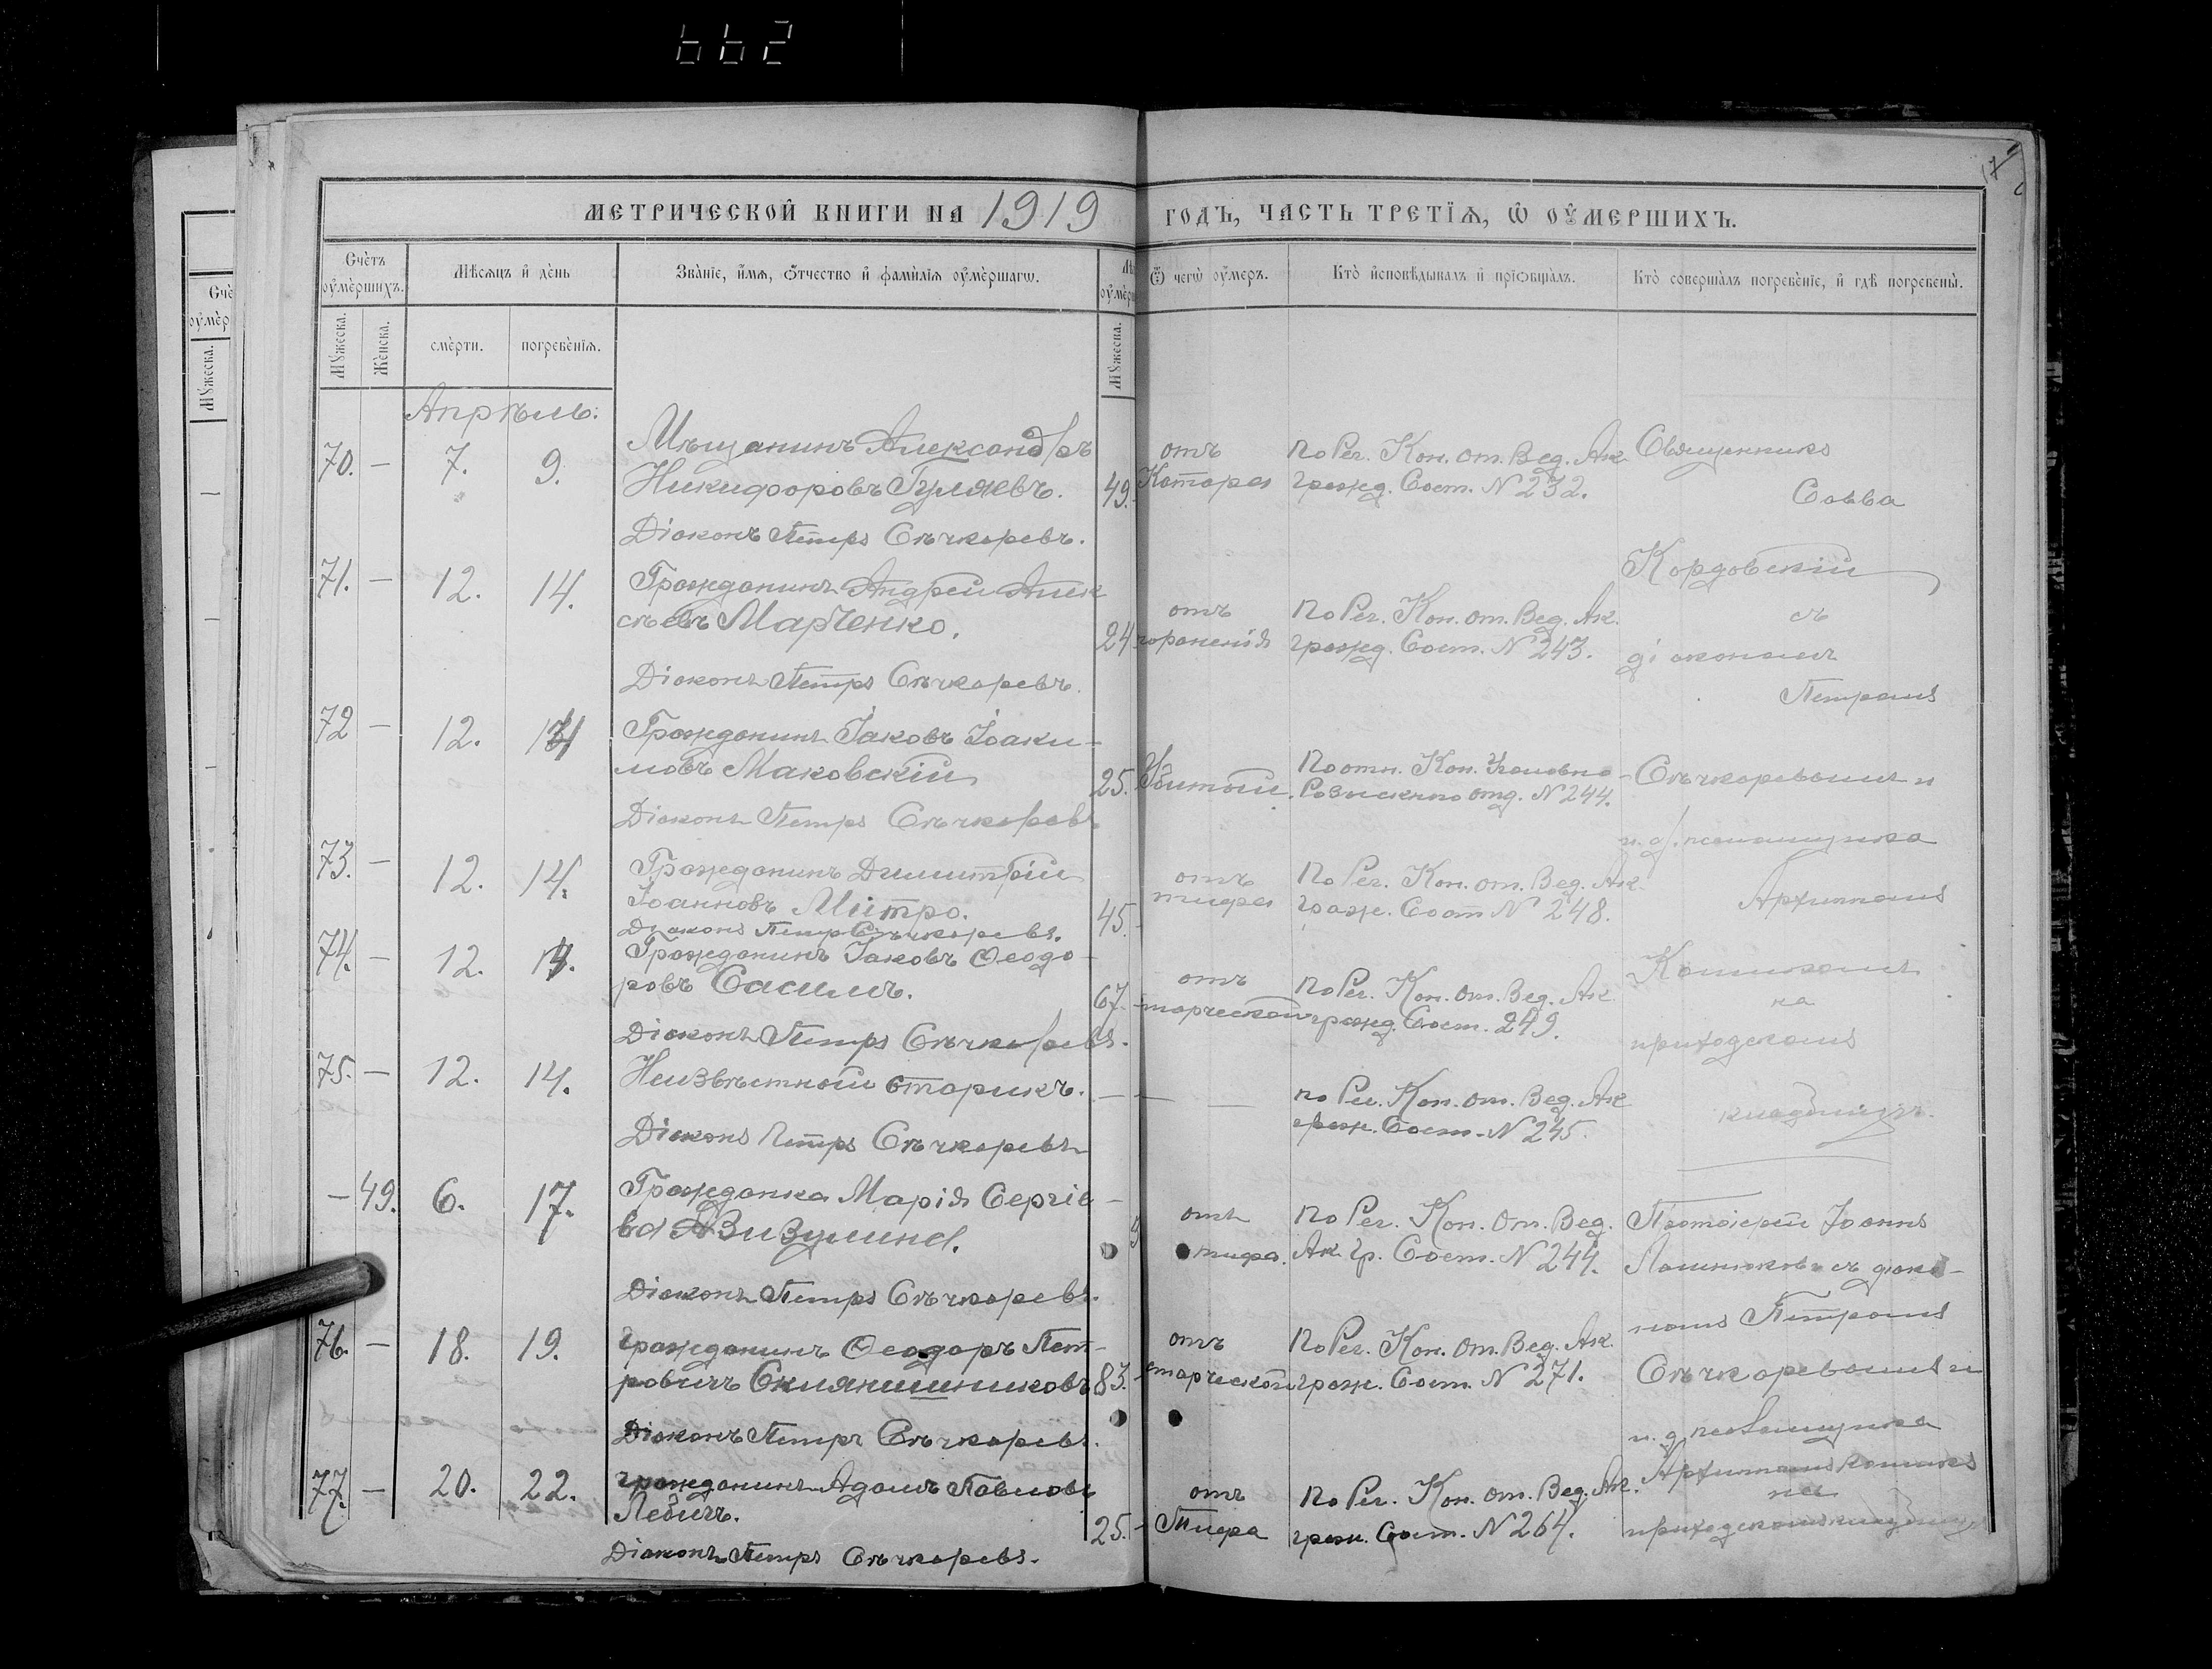 662
17
МЕТРИЧЕСКОЙ КНИГИ НА 1919 ГОДЪ, ЧАСТЬ ТРЕТІѦ, Ѡ ОУМЕРШИХЪ.
Счетъ оумершихъ.
Мѣсяцъ и день
Званіе, имя, отчество и фамилія оумершагѡ.
Ѿ чегѡ оумеръ.
Кто исповѣдывалъ и пріѡбщалъ.
Кто совершалъ погребеніе, и гдѣ погребены.
Мужеска.
Женска.
смерти.
погребенія.
Мужеска.
Апрѣль:
70. — 7. 9. Мѣщанинъ Александръ
Никифоровъ Гуляевъ. 49.
Діаконъ Петръ Сѣчкаревъ.
отъ
Катара
По Рег. Кон. от. Вед. Ак.
гражд. Сост. N 232.
71. — 12. 14. Гражданинъ Андрей Алек
сѣевъ Марченко. 24
Діаконъ Петръ Сѣчкаревъ.
отъ
поранения
По Рег. Кон. от. Вед. Ак.
гражд. Сост. N 243.
72 — 12. 14 Гражданинъ Іаковъ Іоаки-
мовъ Маковскій 25.
Діаконъ Петръ Сѣчкаревъ
Убитый.
По отн. Кон. Уголовно-
Розыскного отд. N 244.
73. — 12. 14. Гражданинъ Димитрій
Іоанновъ Митро. 45.
Діаконъ Петръ Сѣчкаревъ.
отъ
тифа
По Рег. Кон. от. Вед. Ак.
граж. Сост N 248.
74. — 12. 14. Гражданинъ Іаковъ Ѳеодо-
ровъ Сасимъ. 67.
Діаконъ Петръ Сѣчкаревъ.
отъ
старческой
По Рег. Кон. от. Вед. Ак
гражд. Сост. 249.
75. — 12. 14. Неизвѣстный старикъ. — — —
Діаконъ Петръ Сѣчкаревъ
по Рег. Кон. от. Вед. Ак
граж. Сост. N 245.
Священникъ
Савва
Кордовскій
съ
діакономъ
Петромъ
Сѣчкаревымъ и
и. д. псаломщика
на
приходскомъ
кладбищѣ.
— 49. 6. 17. Гражданка Марія Сергіе-
ва 9
Діаконъ Петръ Сѣчкаревъ.
отъ
тифа.
По Рег. Кон. от. Вед.
Ак. гр. Сост. N 244.
76. — 18. 19. гражданинъ Ѳеодоръ Пет-
ровичъ 83.
Діаконъ Петръ Сѣчкаревъ.
отъ
старческой
По Рег. Кон. от. Вед. Ак.
граж. Сост. N 271.
77. — 20. 22. гражданинъ Адамъ Павловъ
Лебичъ. 25.
Діаконъ Петръ Сѣчкаревъ.
отъ
Тифа
По Рег. Кон. от. Вед. Ак.
граж. Сост. N 264.
Протоіерей Іоаннъ
съ діако-
номъ Петромъ
Сѣчкаревымъ и
и. д. псаломщика
на
приходскомъ кладбищѣ